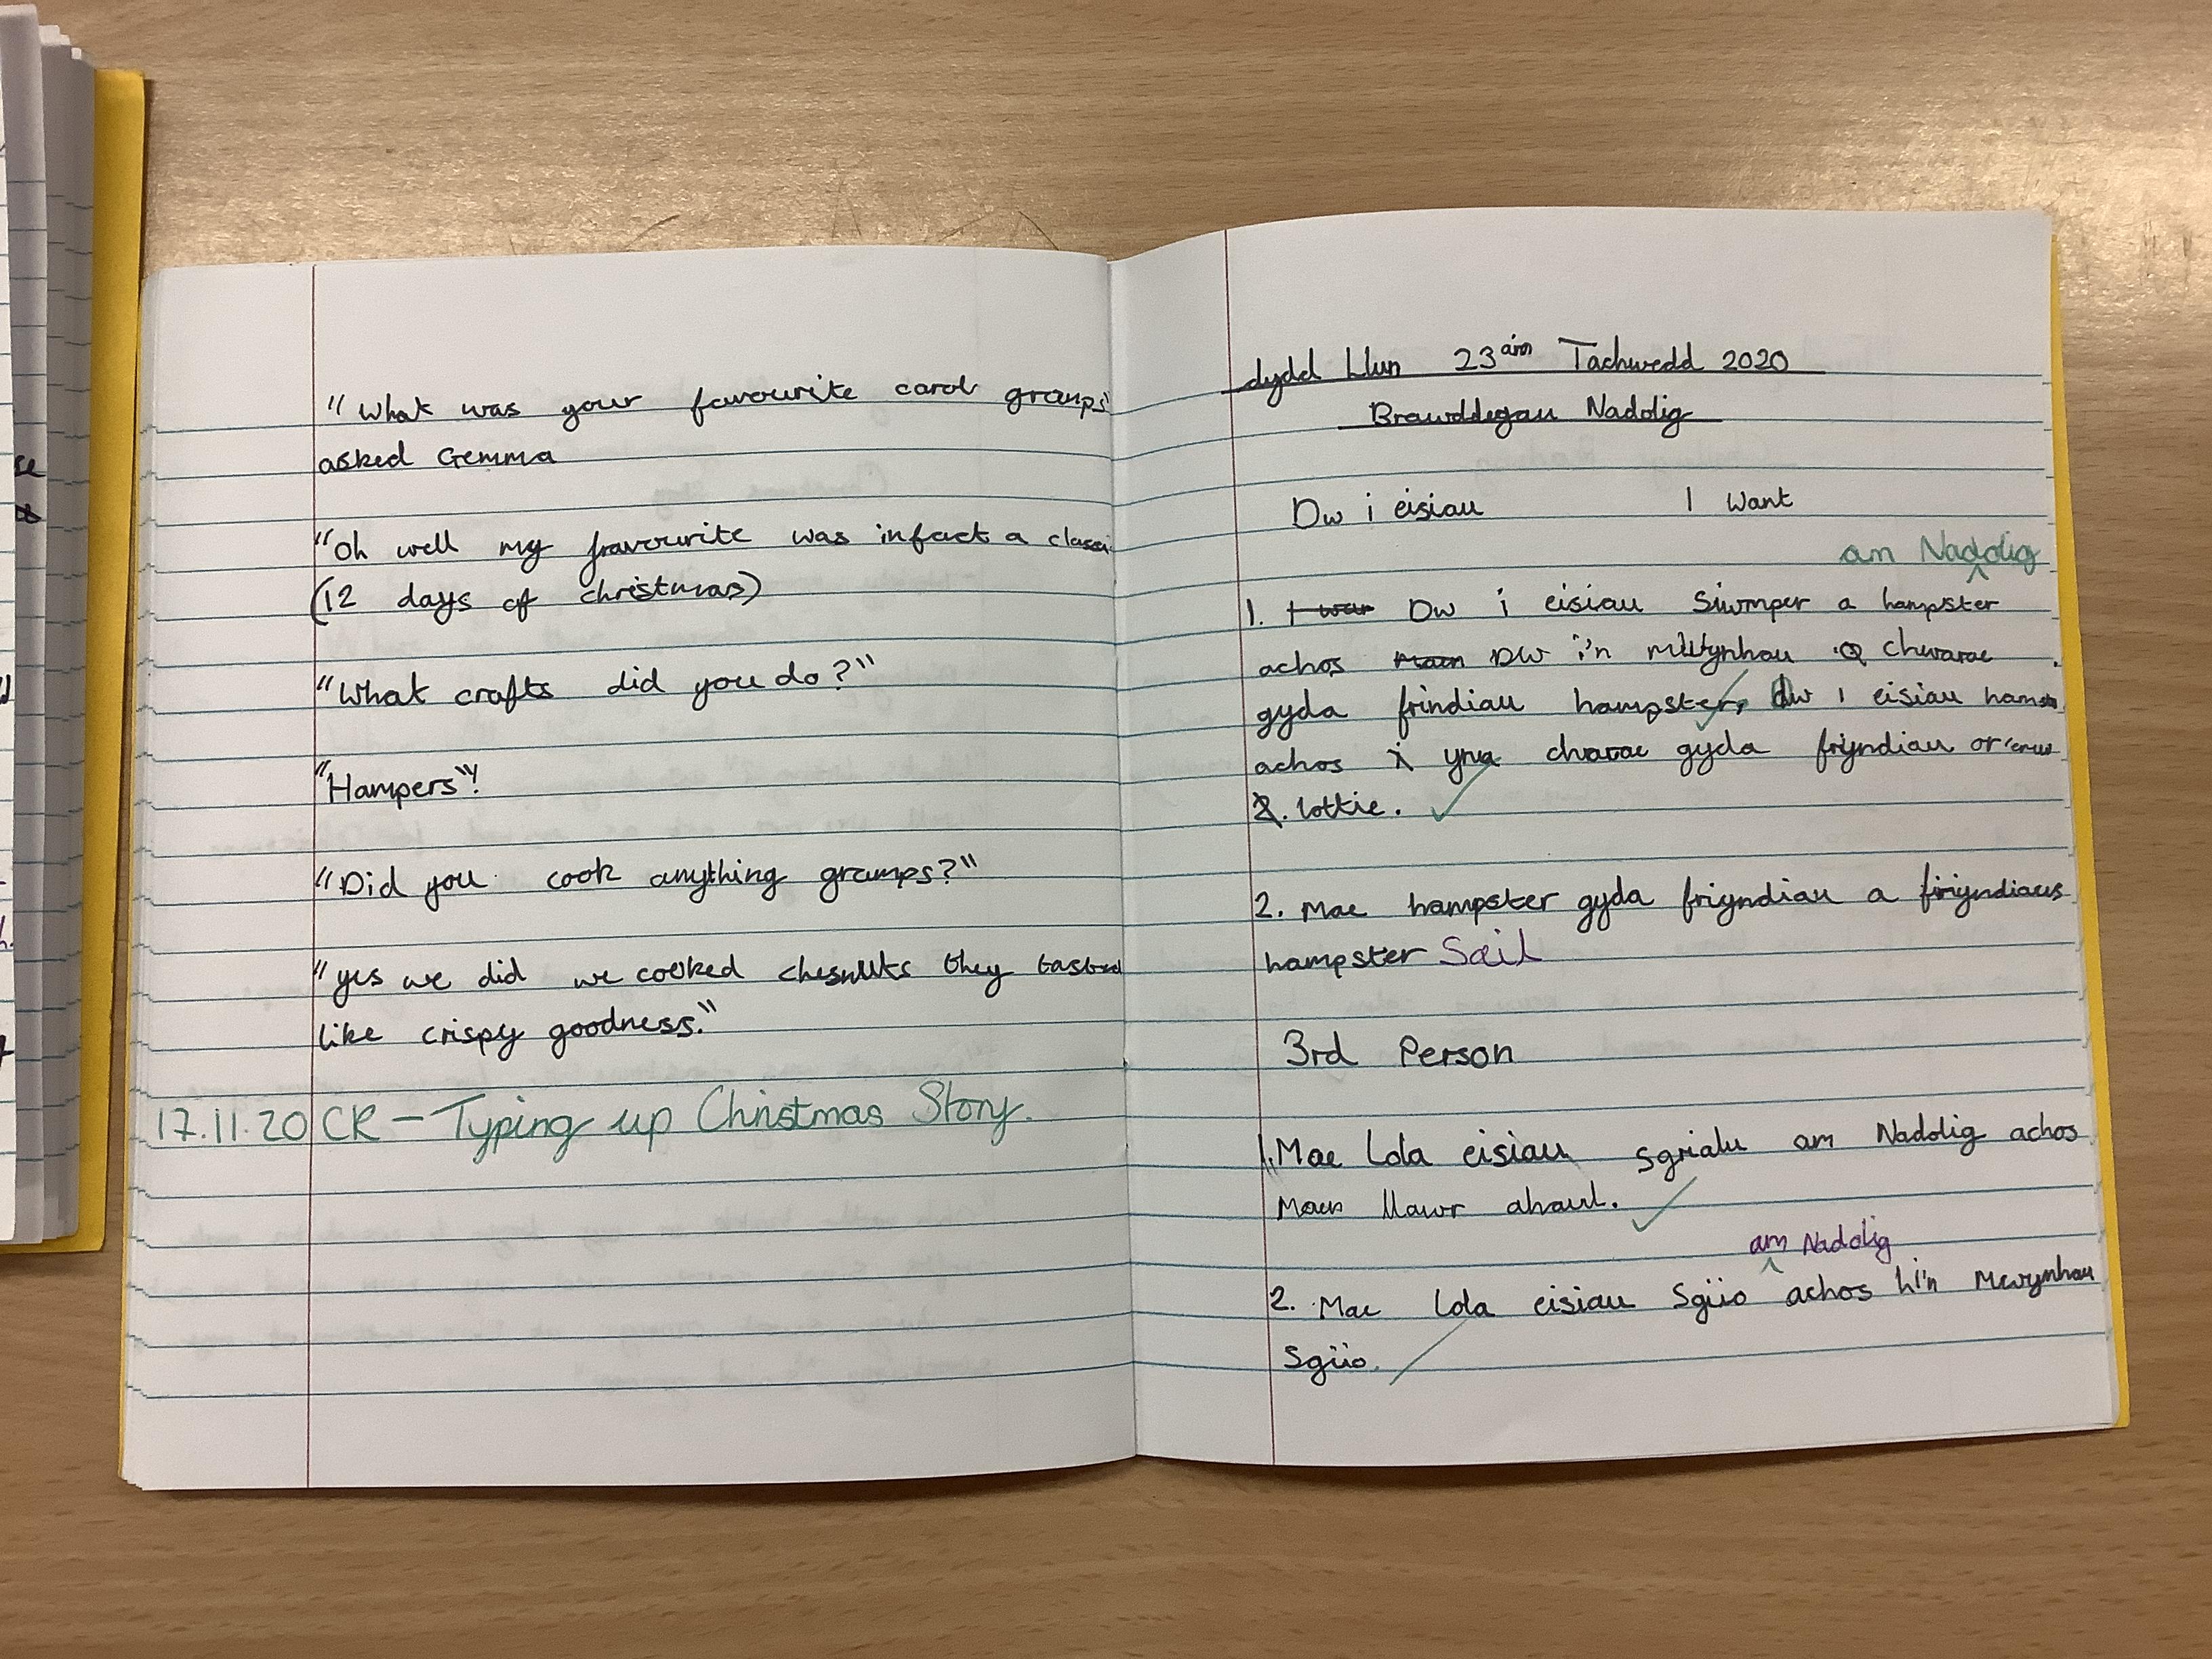 "What was your favourite carol gramps"
asked Gemma
"Oh well my fravourite was infact a classi
(12 days of christmas)
"What crafts did you do?"
"Hampers"!
"Did you cook anything gramps?"
"yes we did we cooked chesnuts they tasted
like crispy goodness."
17.11.20 CR - Typing up Christmas Story.
dydd Llun 23ain Tachwedd 2020
Brawddegau Nadolig
Dw i eisiau I Want
am Naddolig
1. Dw i eisiau Siwmper a hampster
achos DW i'n mwynhau chwarae
gyda frindiau hampster, dw i eisiau
achos yna chwarae gyda friyndiau
lottie.
2. Mae hampster gyda friyndiau a
hampster Sail
3rd Person
1. Mae Lola eisiau sgrialu am Nadolig achos
llawr ahawl.
am Nadolig
2. Mae Lola eisiau Sgïio achos hi'n Mwynhau
Sgïio.